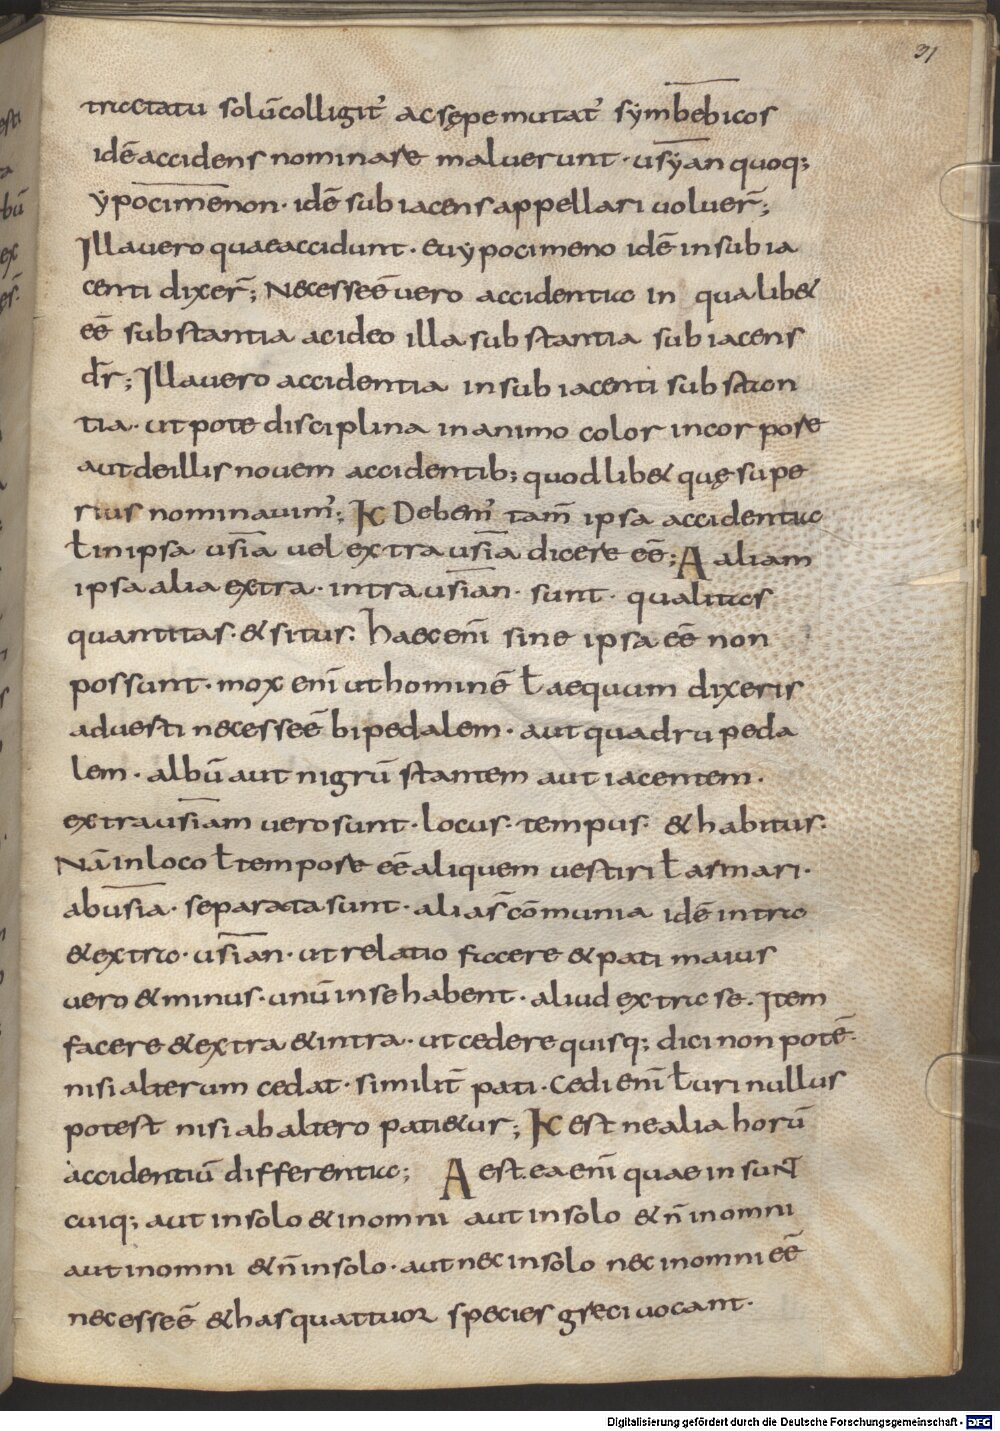 31
tractatu solū colligit᾿ ac sępe mutat᾿ symbebicos
idē accidens nominare maluerunt · usyan quoq;
ypocimenon · idē subiacens appellari voluer̄;
Illa vero quae accidunt · eu ypocimeno idē in subia
centi dixer̄; Necesse ē vero accidentia in qualib&
eē substantia ac ideo illa substantia subiacens
dr̄; Illa vero accidentia in subiacenti substan
tia · ut pote disciplina in animo color in corpore
aut de illis novem accidentib; quodlib& quę supe
rius nominavim᾿; K Debem᾿ tam̄ ipsa accidentia
ł in ipsa usia vel extra usia dicere eē; A aliam
ipsa alia extra · intra usian · sunt · qualitas
quantitas · & situs : haec eni sine ipsa eē non
possunt · mox eni ut hominē ł aequum dixeris
aduesti necesse ē bipedalem · aut quadrupeda
lem · albū aut nigrū stantem aut iacentem ·
extra usiam vero sunt · locus · tempus · & habitus :
Nā in loco ł tempore eē aliquem vestiri ł armari ·
ab usia · separata sunt · alias cōmunia idē intra
& extra · usian · ut relatio facere & pati maius
vero & minus · unū in se habent · aliud extra se · Item
facere & extra & intra · ut cedere quisq; dici non potē ·
nisi alterum cedat · similit̄ pati · Cedi eni ł uri nullus
potest nisi ab altero patiaur; K est ne alia horū
accidentiū differentia; A est · ea eni quae in sunt
cuiq; aut in solo & in omni aut in solo & n̄ in omni
aut in omni & n̄ in solo · aut nec in solo nec in omni eē
necesse ē & has quattuor species greci vocant ·
Digitalisierung gefördert durch die Deutsche Forschungsgemeinschaft - DFG